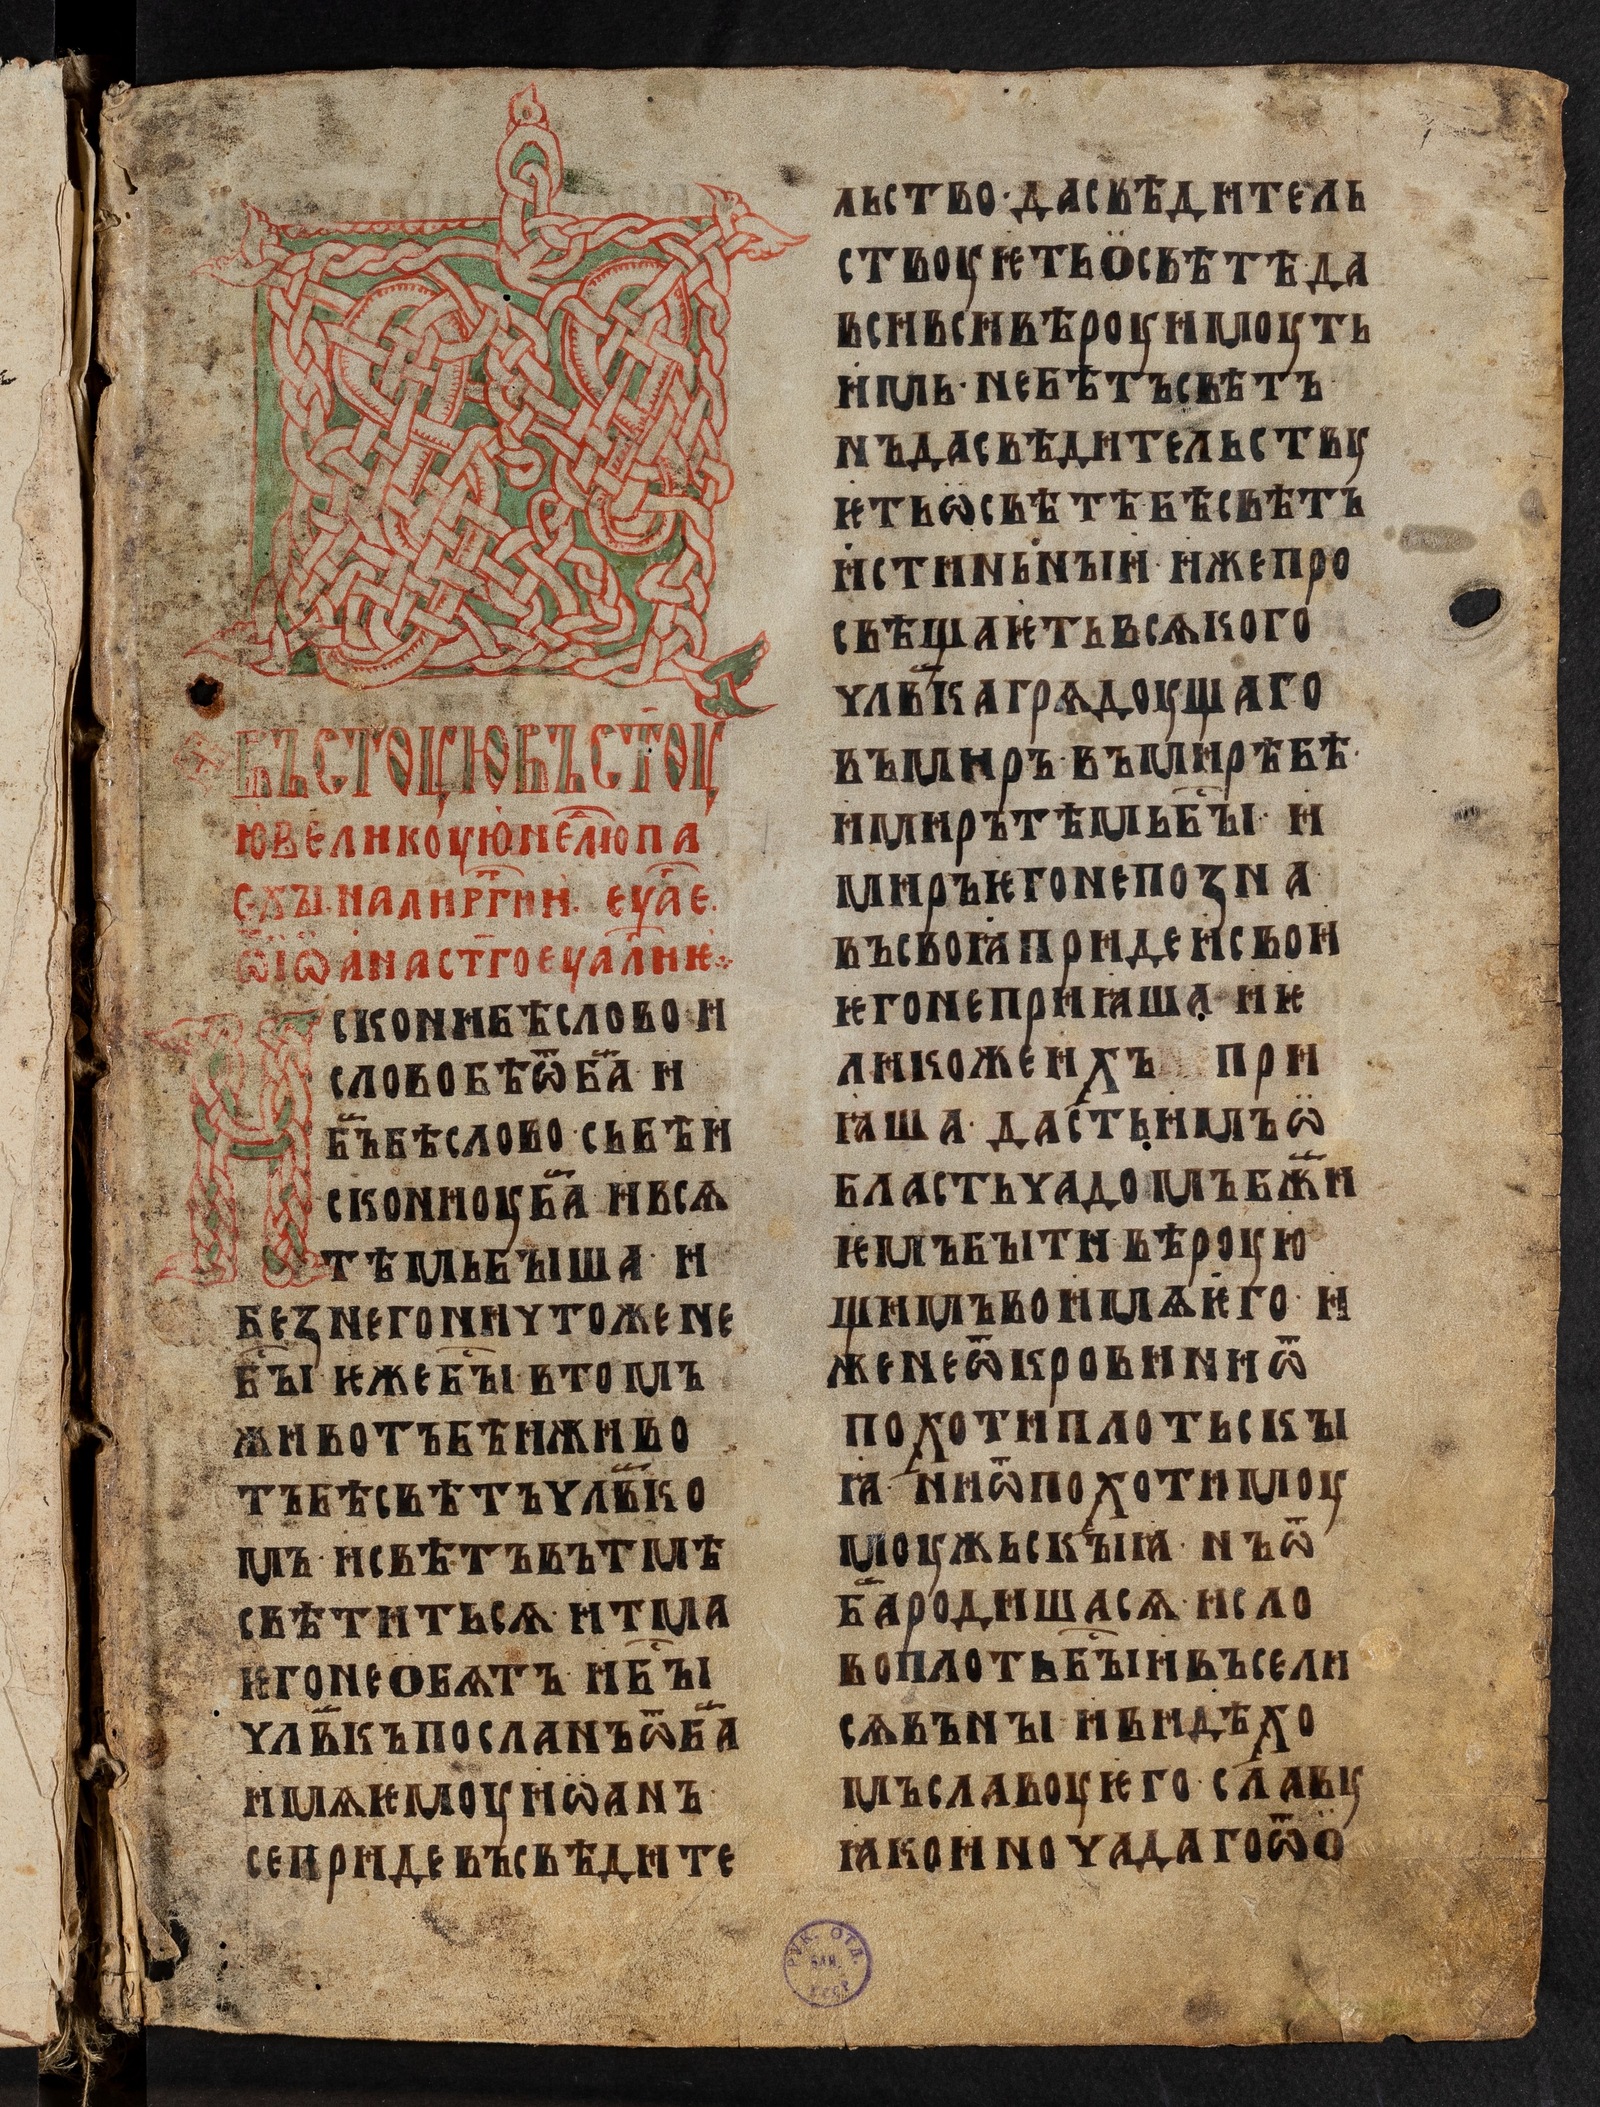 ВЪСТОУЮВЪСТ҃ОУ
ЮВЕЛИКОУЮНЕДЛ҃ЮПА
СХЫ·НАЛИРГ҃ИИ· ЕУА҃Е·
Ѿ҇ІѠАНАСТ҃ГОЕУАЛ҃ИѤ
ИСКОНИБѢСЛОВО·И
СЛОВОБѢѾБ҃А· И
Б҃ЪБѢСЛОВО·СЬБѢИ
СКОНИОУБ҃А· ИВСѦ
ТѢМЬБЪІША· И
БЕЗНЕГОНИЧТОЖЕНЕ
БЪІ҇· ѤЖЕБЪІ҇·ВТОМЪ
ЖИВОТЪБѢИЖИВО
ТЪБѢСВѢТЪЧЛВ҃КО
МЪ· ИСВѢТЪВЪТМѢ
СВѢТИТЬСѦ·ИТМА
ѤГОНЕОБѦТЪ· ИБЪІ҇
ЧЛВ҃КЪПОСЛАНЪѾБ҃А
ИМѦѤМОУИѠАНЪ·
СЕПРИДЕВЪСВѢДИТЕ
ЛЬСТВО·ДАСВѢДИТЕЛЬ
СТВОУѤТЬОСВѢТѢ·ДА
ВСИВСИВѢРОУИМОУТЬ
ИМЬ·НЕБѢТЪСВѢТЪ
НЪДАСВѢДИТЕЛЬСТВУ
ѤТЬѠСВѢТѢ·БѢСВѢТЪ
ИСТИНЬНЪІИ·ИЖЕПРО
СВѢЩАѤТЬВСѦКОГО
ЧЛВ҃КАГРѦДОУЩАГО
ВЪМИРЪ·ВЪМИРѢБѢ·
ИМИРЪТѢМЬБЪІ҇· И
МИРЪѤГОНЕПОЗНА
ВЪСВОꙖПРИДЕИСВОИ
ѤГОНЕПРИꙖША· ИѤ
ЛИКОЖЕИХЪ ПРИ
ꙖША· ДАСТЬИМЪѠ
БЛАСТЬЧАДОМЪБЖ҃И
ѤМЪБЪІТИ·ВѢРОУЮ
ЩИМЪВОИМѦѤГО· И
ЖЕНЕѾКРОВИНИѾ
ПОХОТИПЛОТЬСКЪІ
Ꙗ· НИѾПОХОТИМОУ
МОУЖЬСКЪІꙖ· НЪѾ
Б҃АРОДИШАСѦ·ИСЛО
ВОПЛОТЬБЪІ҇ИВЪСЕЛИ
СѦВЪНЪІ·ИВИДѢХО
МЪСЛАВОУѤГО·СЛАВУ
ꙖКОИНОЧАДАГОѾО
РУК. ОТД.
БАН
СССР